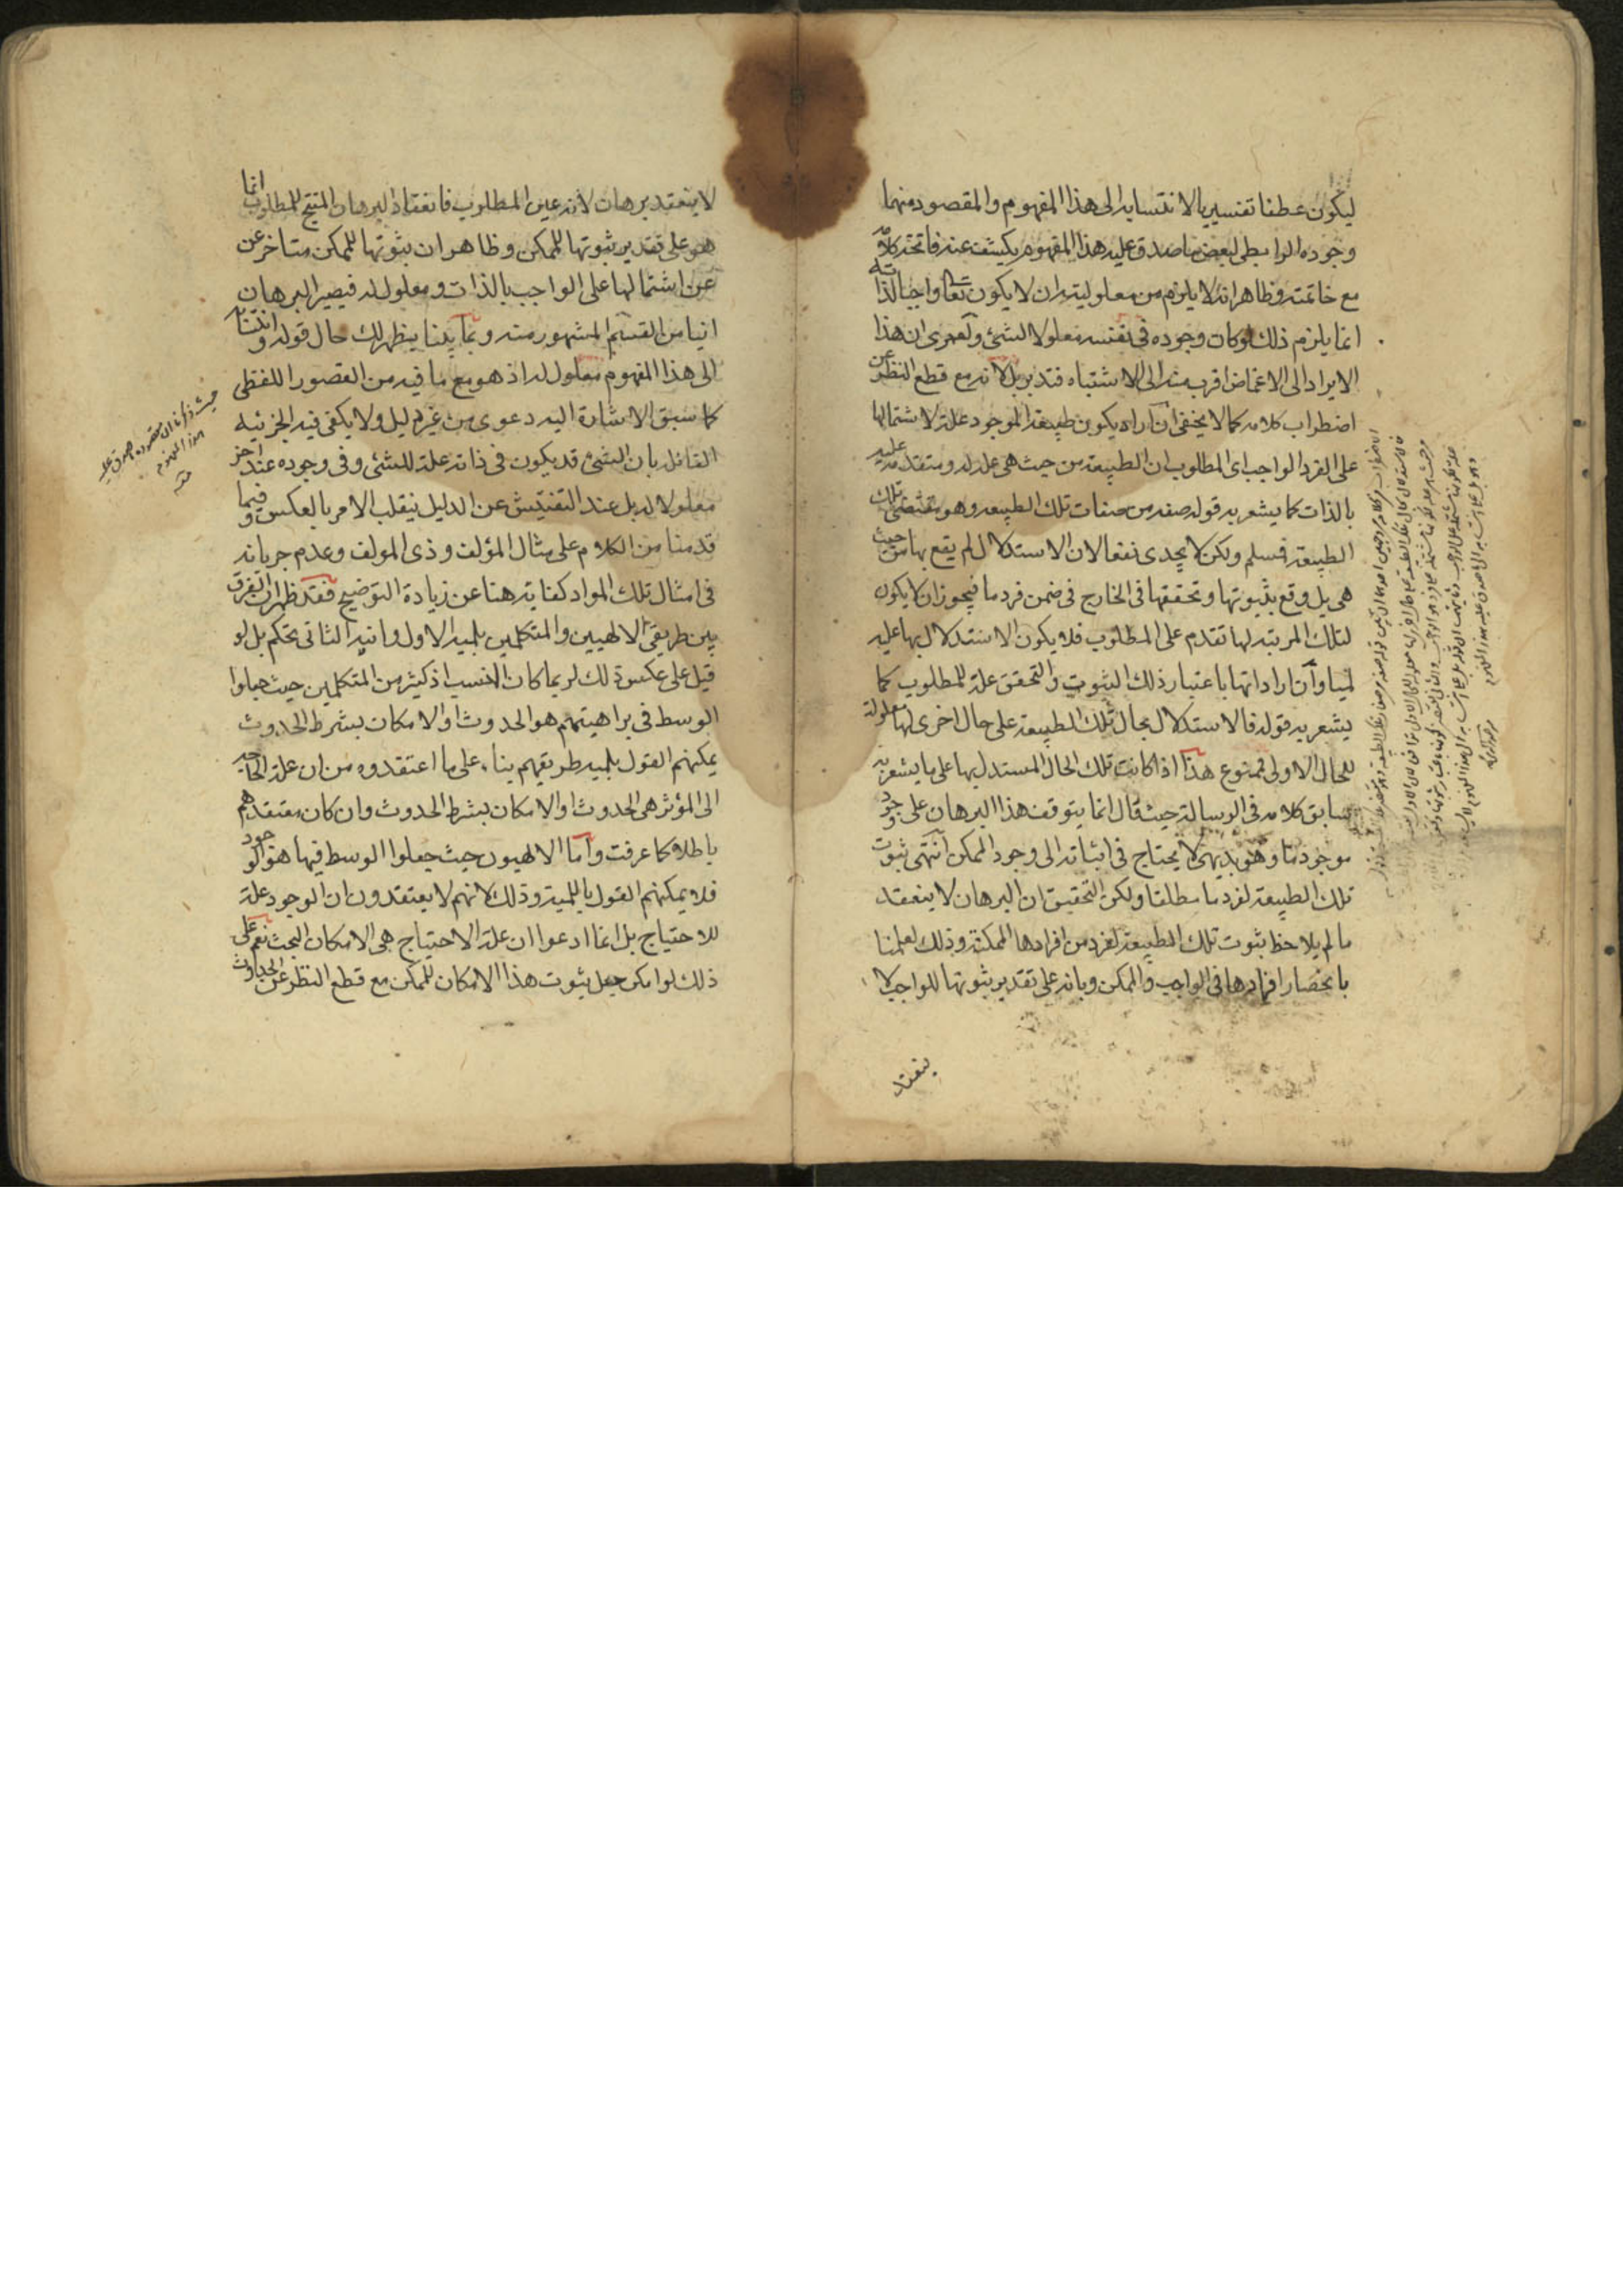 ليكون عطفا تفسيريا لانتسابه الى هذا المفهوم والمقصود منهما
وجوده الرابطى لبعض ما صدق عليه هذا المفهوم يكشف عنه فاتحة كلامه
مع خاتمته وظاهر انه لا يلزم من معلوليته ان لا يكون تعالى واجبا لذاته
انما يلزم ذلك لو كان وجوده فى نفسه معلولا لشئ ولعمرى ان هذا
الايراد الى الاغماض اقرب منه الى الاشتباه فتدبر بل لانه مع قطع النظر عن
اضطراب كلامه كما لا يخفى ان اراد بكون طبيعة الموجود علة لاشتمالها
على الفرد الواجب اى المطلوب ان الطبيعة من حيث هى علة له ومتقدمة عليه
بالذات كما يشعر به قوله صفة من صفات تلك الطبيعة وهو مقتضى تلك
الطبيعة فمسلم ولكن لا يجدى نفعا لان الاستدلال لم يقع بها من حيث
هى بل وقع بثبوتها وتحققها فى الخارج فى ضمن فرد ما فيجوز ان لا يكون
لتلك المرتبة لها تقدم على المطلوب فلا يكون الاستدلال بها عليه
لميا وان اراد انها باعتبار ذلك الثبوت والتحقق علة للمطلوب كما
يشعر به قوله فالاستدلال بحال تلك الطبيعة على حال اخرى لها معلولة
للحال الاولى فممنوع هذا اذا كانت تلك الحال المستدل بها على ما يشعر به
سابق كلامه فى الرسالة حيث قال انما يتوقف هذا البرهان على وجود
موجود ما وهو بديهى لا يحتاج فى اثباته الى وجود الممكن انتهى ثبوت
تلك الطبيعة لفرد ما مطلقا ولكن التحقيق ان البرهان لا ينعقد
ما لم يلاحظ ثبوت تلك الطبيعة لفرد من افرادها الممكنة وذلك لعلمنا
بانحصار افرادها فى الواجب والممكن وبانه على تقدير ثبوتها للواجب لا
ينعقد
لا ينعقد برهان لانه عين المطلوب فانعقاد البرهان المنتج للمطلوب انما
هو على تقدير ثبوتها للممكن وظاهر ان ثبوتها للممكن متاخر عن
عن اشتمالها على الواجب بالذات ومعلول له فيصير البرهان
انيا من القسم المشهور منه وبما بينا يظهر لك حال قوله وانتسابه
الى هذا المفهوم معلول له اذ هو مع ما فيه من القصور اللفظى
كما سبق الاشارة اليه دعوى من غير دليل ولا يكفى فيه الجزئية
القائلة بان الشئ قد يكون فى ذاته علة للشئ وفى وجوده عند اخر
معلولا له بل عند التفتيش عن الدليل ينقلب الامر بالعكس وفيما
قدمنا من الكلام على مثال المؤلف وذى المولف وعدم جريانه
فى امثال تلك المواد كفاية هنا عن زيادة التوضيح فقد ظهر ان الفرق
بين طريقى الالهيين والمتكلمين بلمية الاول وانية الثانى تحكم بل لو
قيل على عكس ذلك لربما كان انسب اذ كثير من المتكلمين حيث جعلوا
الوسط فى براهينهم هو الحدوث او الامكان بشرط الحدوث
يمكنهم القول بلمية طريقهم بناء على ما اعتقدوه من ان علة الحاجة
الى المؤثر هى الحدوث او الامكان بشرط الحدوث وان كان معتقدهم
باطلا كما عرفت واما الالهيون حيث جعلوا الوسط فيها هو الوجود
فلا يمكنهم القول باللمية وذلك لانهم لا يعتقدون ان الوجود علة
للاحتياج بل انما ادعوا ان علة الاحتياج هى الامكان البحت نعم على
ذلك لو امكن جعل ثبوت هذا الامكان للممكن مع قطع النظر عن الحدوث